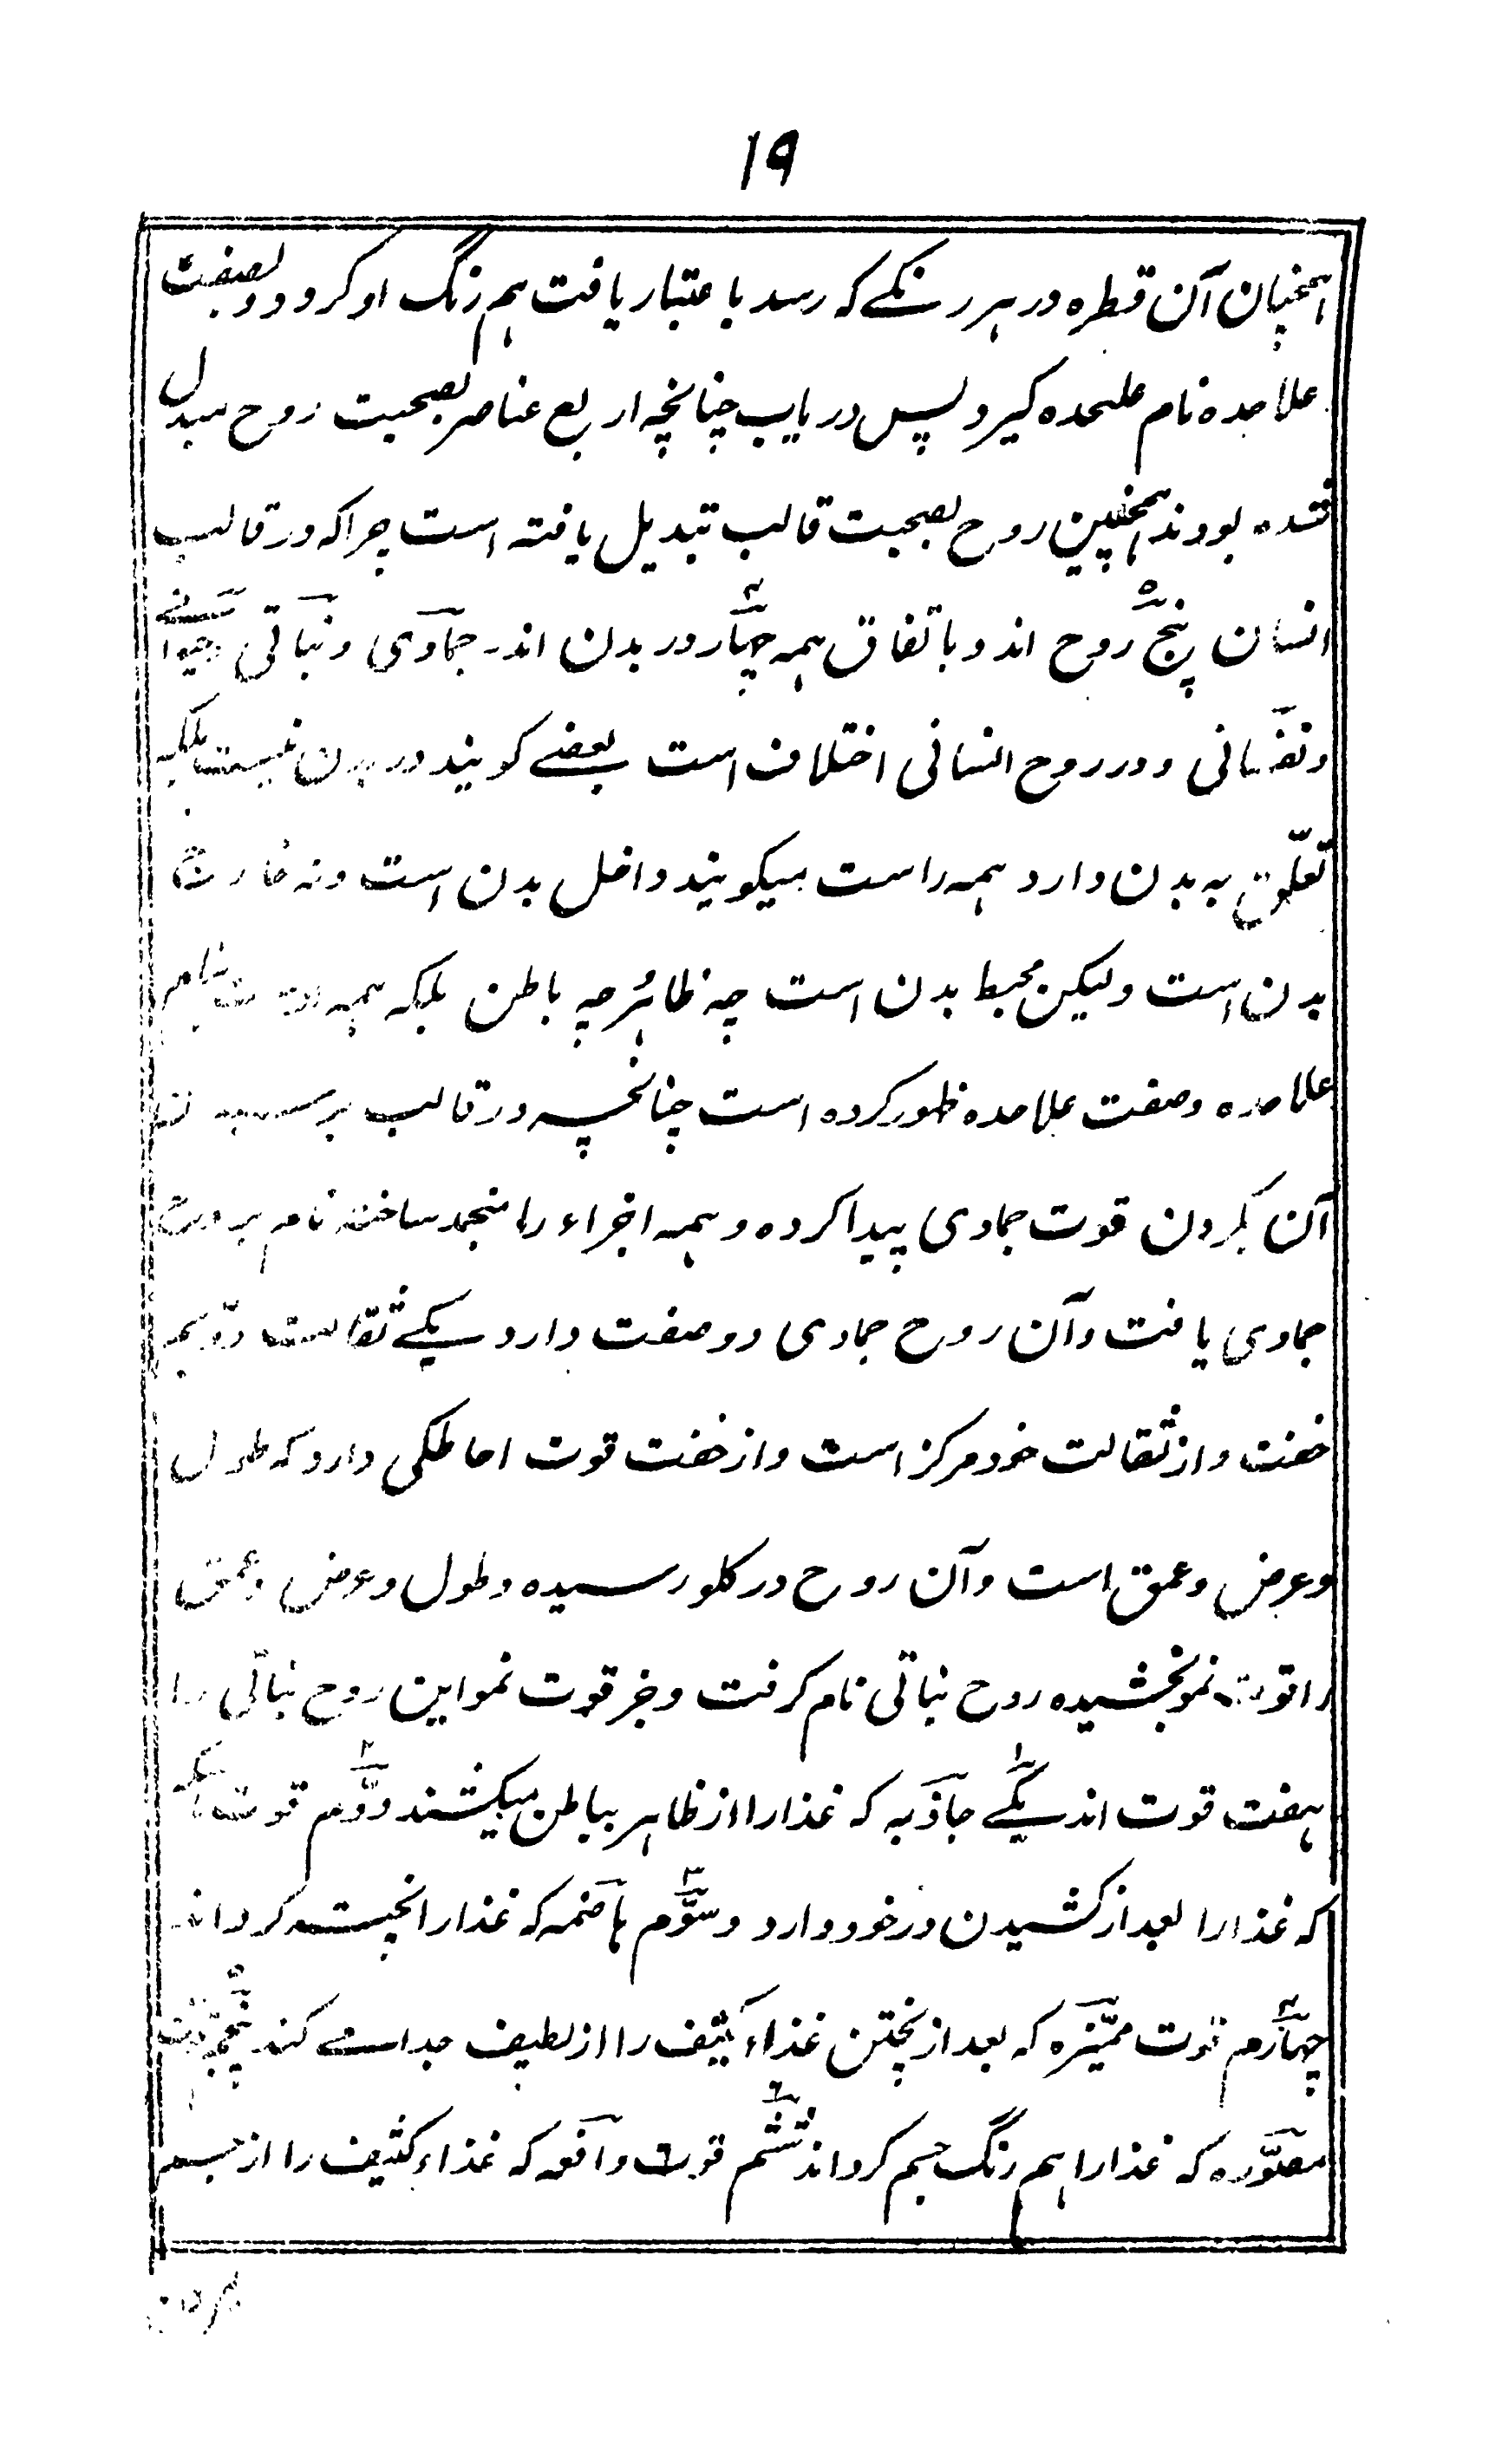 ١٩
همچنان آن قطره در هر رنگے که رسد باعتبار یافت هم رنگ او گردد و بصفت
علاحده نام علیحده گیرد پس دریاب چنانچه اربع عناصر بصحبت روح مبدل
شده بودند همچنین روح بصحبت قالب تبدیل یافته است چراکه در قالب
انسان پنج روح اند و باتفاق همه چهار در بدن اند جمادی و نباتی و حیوانے
و نفسانی و در روح انسانی اختلاف است بعضے گویند در بدن نیست بلکه
تعلّق به بدن دارد همه راست میگویند داخل بدن است و نه خارج
بدن است ولیکن محیط بدن است چه ظاهر چه باطن بلکه همه اوست بنام
علاحده و صفت علاحده ظهور کرده است چنانچه در قالب
آن بگردن قوت جمادی پیدا کرده و همه اجزاء را منجمد ساخته نام بروح
جمادی یافت و آن روح جمادی دو صفت دارد یکے ثقالت دوم
خفت و از ثقالت خود مرکز است و از خفت قوت احاطگی دارد که طول
و عرض و عمق است و آن روح در گلو رسیده و طول و عرض و عمق
را قوت نمو بخشیده روح نباتی نام گرفت و جز قوت نمو این روح نباتی را
هفت قوت اند یکے جاذبه که غذا را از ظاهر بباطن میکشند دوّم قوت ماسکه
که غذا را بعد از کشیدن در خود دارد و سوّم هاضمه که غذا را پخته گرداند
چهارم قوت ممیّزه که بعد از پختن غذاء کثیف را از لطیف جدا مے کند پنجم قوت
مصوّره که غذا را هم رنگ جسم گرداند ششم قوت دافعه که غذاء کثیف را از جسم